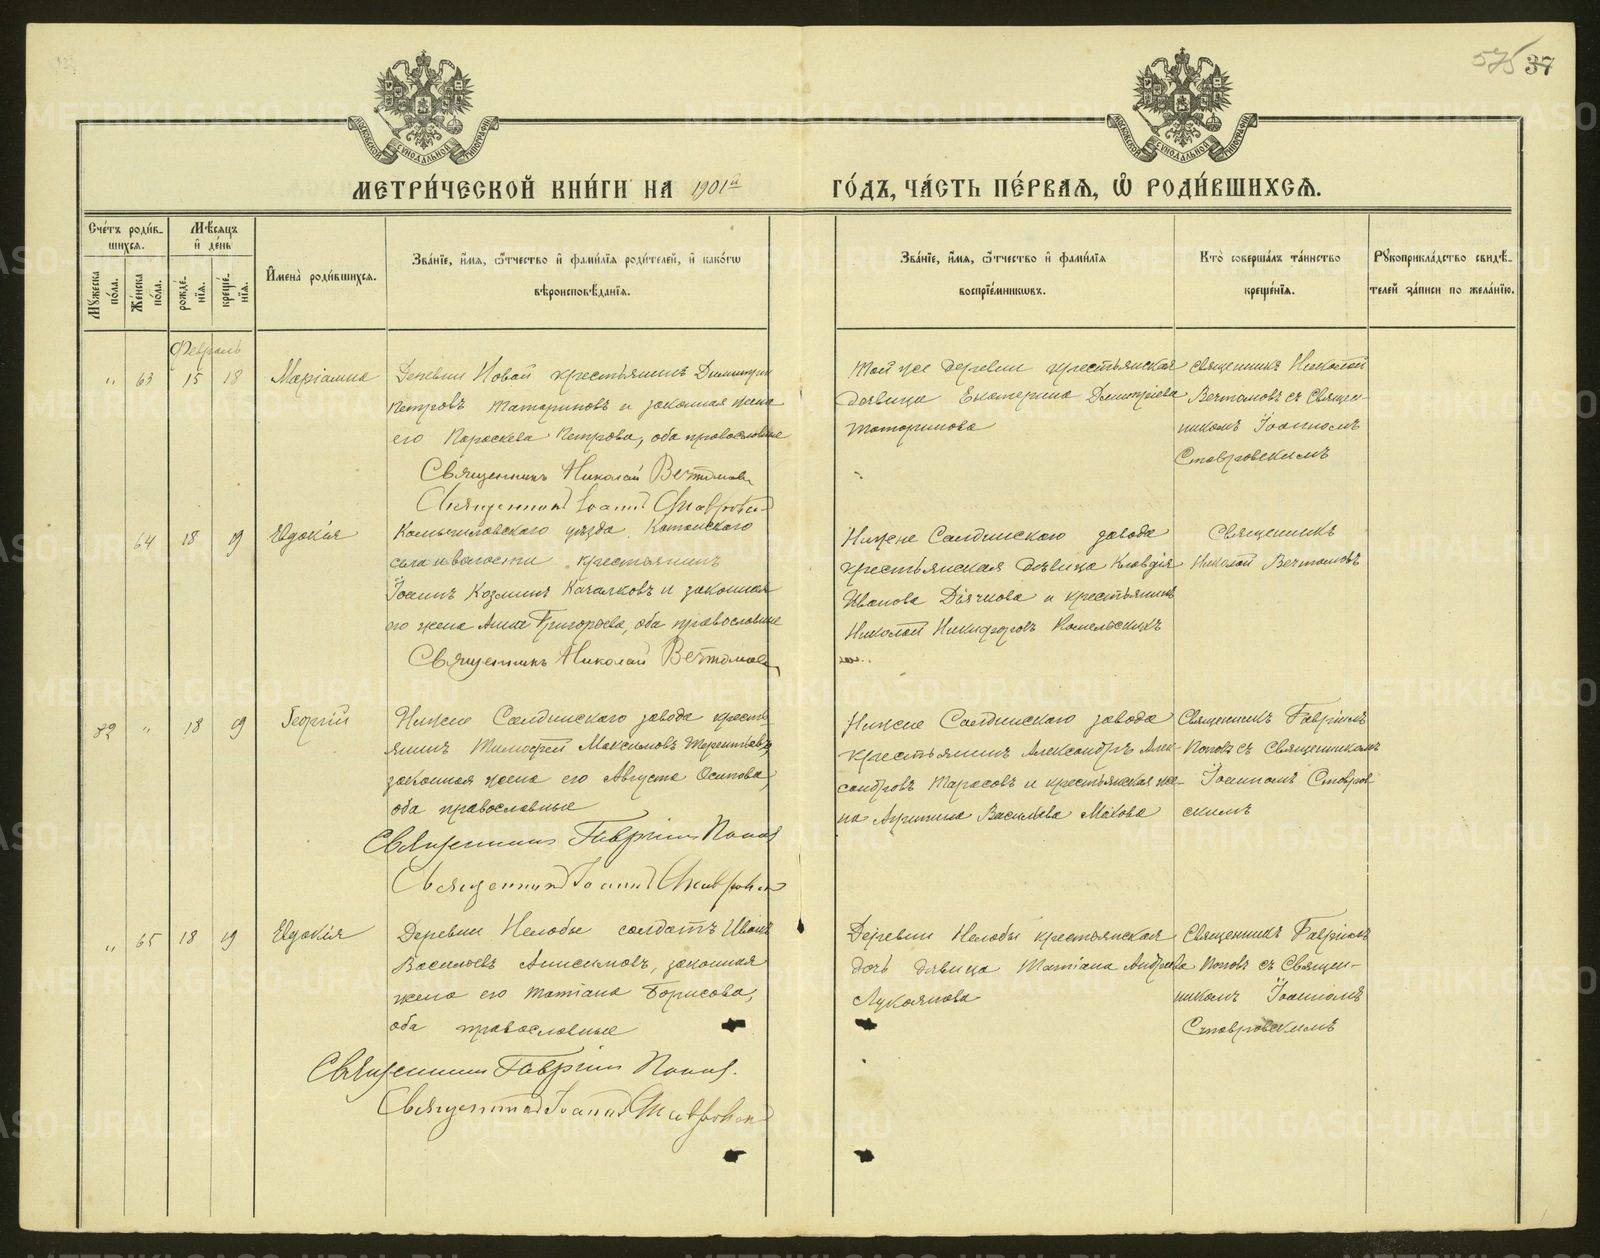 575 37
МОСКОВСКОЙ СѴНОДАЛЬНОЙ ТИПОГРАФІИ
МОСКОВСКОЙ СѴНОДАЛЬНОЙ ТИПОГРАФІИ
МЕТРИ́ЧЕСКОЙ КНИ́ГИ НА 1901й ГО́ДЪ, ЧА́СТЬ ПЕ́РВАѦ, Ѽ РОДИ́ВШИХСѦ.
Сче́тъ роди́в-
шихсѧ.
Мѣ́сѧцъ
и҆ де́нь
Мꙋ́жеска
по́ла.
Же́нска
по́ла.
рожде́-
нїѧ.
креще́-
нїѧ.
И҆мена̀ роди́вшихсѧ.
Зва́нїе, и҆́мѧ, ѻ҆́тчество и҆ фами́лїѧ роди́телей, и҆ како́гѡ
вѣроисповѣ́данїѧ.
Зва́нїе, и҆́мѧ, ѻ҆́тчество и҆ фами́лїѧ
воспрїе́мникѡвъ.
Кто̀ соверша́лъ та́инство
креще́нїѧ.
Рꙋкоприкла́дство свидѣ́-
телей за́писи по жела́нїю.
Февраль
" 63 15 18 Маріамна
Деревни Новой крестьянинъ Димитрій
Петровъ Татариновъ и законная жена
его Параскева Петрова, оба православные
Священникъ Николай Вечтомовъ
Священникъ Іоаннъ Ставровскій
Той же деревни крестьянская
дѣвица Екатерина Димитріева
Татаринова
Священникъ Николай
Вечтомовъ съ Священ-
никомъ Іоанномъ
Ставровскимъ
64 18 19 Евдокія
Камышловскаго уѣзда, Катайскаго
села и волости крестьянинъ
Іоаннъ Козминъ Качалковъ и законная
его жена Анна Григорьева, оба православные
Священникъ Николай Вечтомовъ
Нижне Салдинскаго завода
крестьянская дѣвица Клавдія
Иванова Дьячкова и крестьянинъ
Николай Никифоровъ
Священникъ
Николай Вечтомовъ
82 " 18 19 Георгій
Нижне Салдинскаго завода кресть-
янинъ Тимофей Максимовъ Терентьевъ,
законная жена его Августа Осипова,
оба православные
Священникъ Гавріилъ Поповъ
Священникъ Іоаннъ Ставровскій
Нижне Салдинскаго завода
крестьянинъ Александръ Алек-
сандровъ Тарасовъ и крестьянская же-
на Агрипина Васильева Махова
Священникъ Гавріилъ
Поповъ съ Священникомъ
Іоанномъ Ставров-
скимъ
" 65 18 19 Евдокія
Деревни Нелобы солдатъ Иванъ
Васильевъ Анисимовъ, законная
жена его Татіана Борисова,
оба православные
Священникъ Гавріилъ Поповъ.
Священникъ Іоаннъ Ставровскій
Деревни Нелобы крестьянская
дочь дѣвица Татіана Андреева
Лукоянова
Священникъ Гавріилъ
Поповъ съ Священ-
никомъ Іоанномъ
Ставровскимъ
METRIKI.GASO-URAL.RU